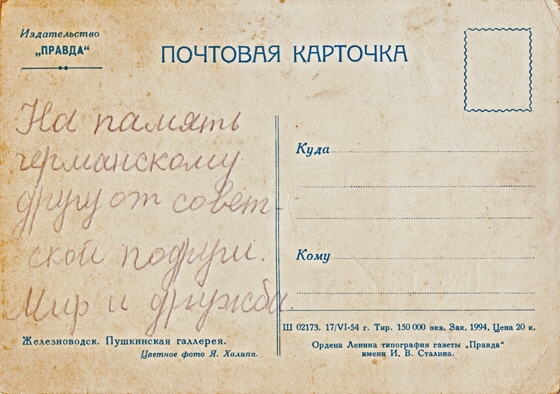 Издательство
„ПРАВДА“
ПОЧТОВАЯ КАРТОЧКА
На память
германскому
другу от совет-
ской подруги.
Мир и дружба.
Куда
Кому
Железноводск. Пушкинская галлерея.
Цветное фото Я. Халипа.
Ш 02173. 17/VI-54 г. Тир. 150 000 экз. Зак. 1994. Цена 20 к.
Ордена Ленина типография газеты „Правда“
имени И. В. Сталина.